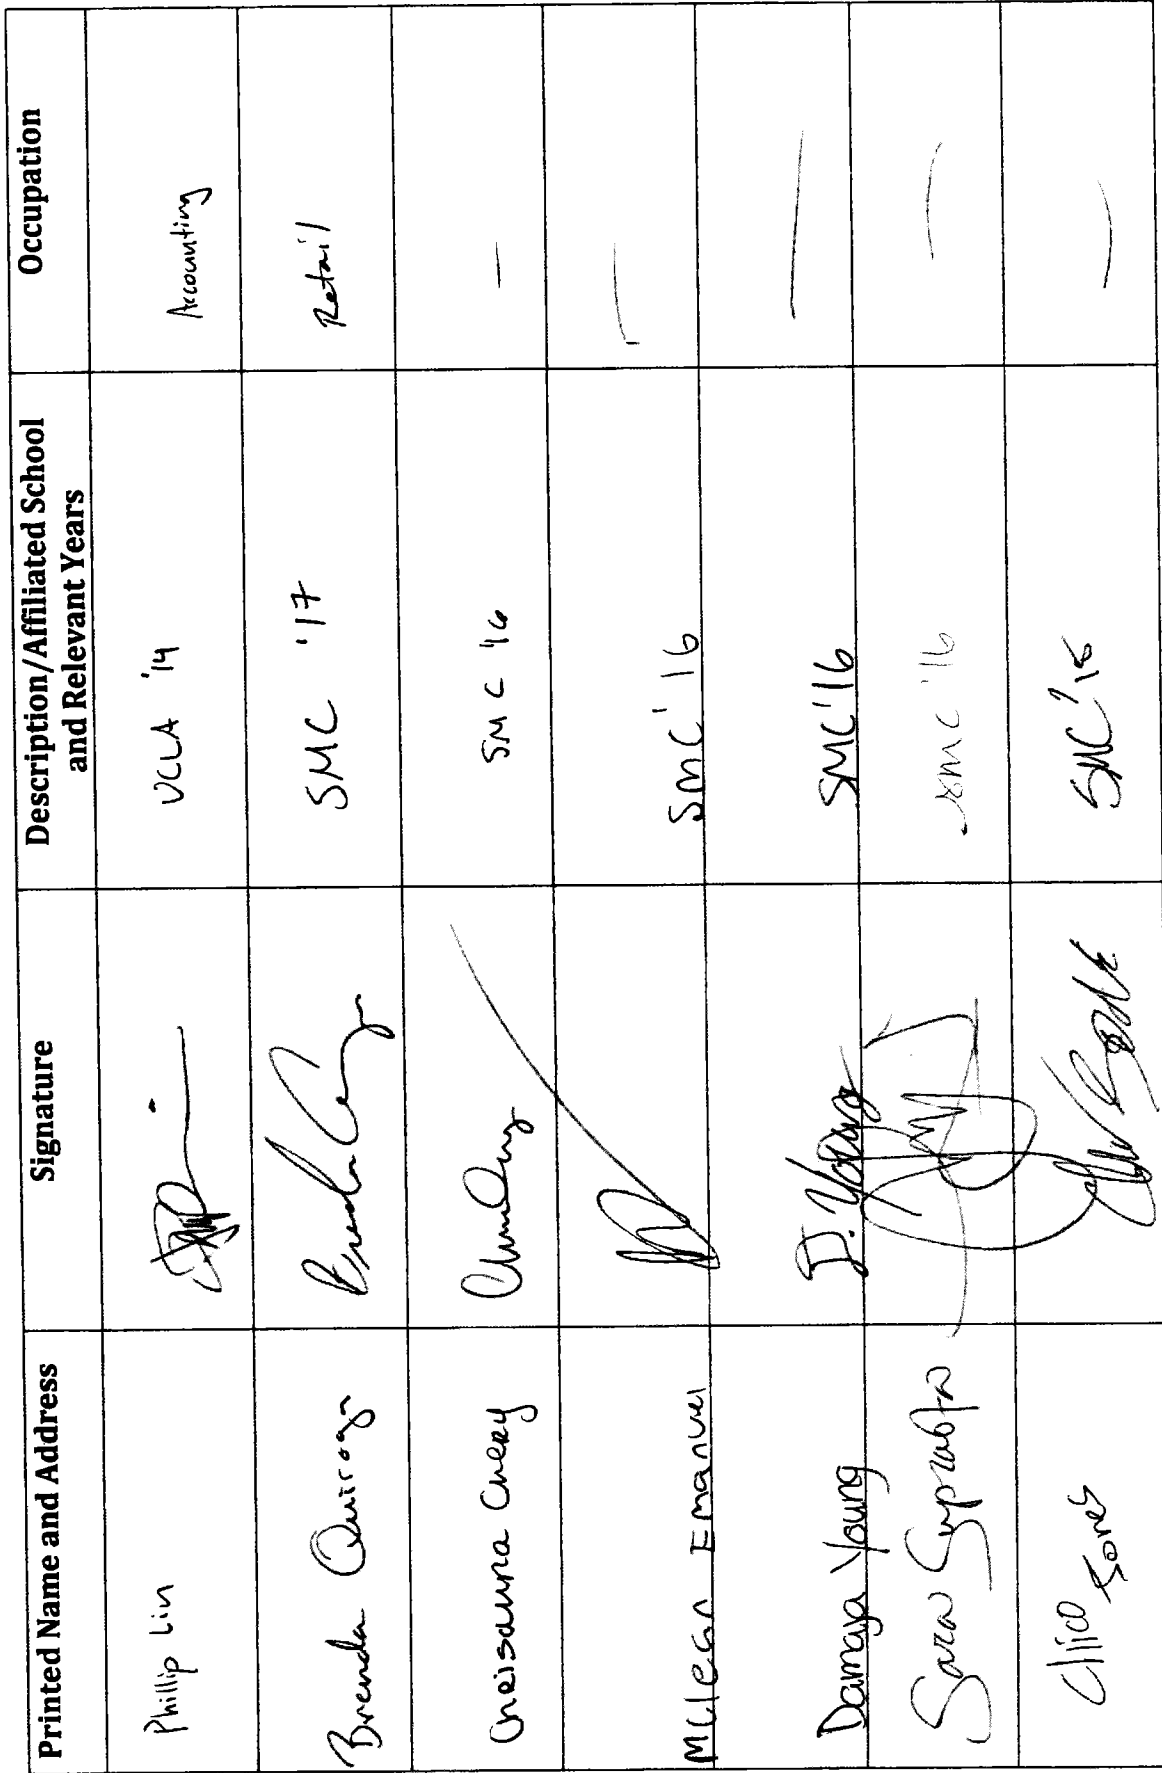 Printed Name and Address Signature Description/Affiliated School and Relevant Years Occupation
Phillip Lin UCLA '14 Accounting
Brenda Quiroga SMC '17 Retail
SMC '16 —
Mclean Emanuel SMC '16 —
Damaya Young D. Young SMC'16 —
Sara SMC '16 —
Chico Jones SMC '16 —